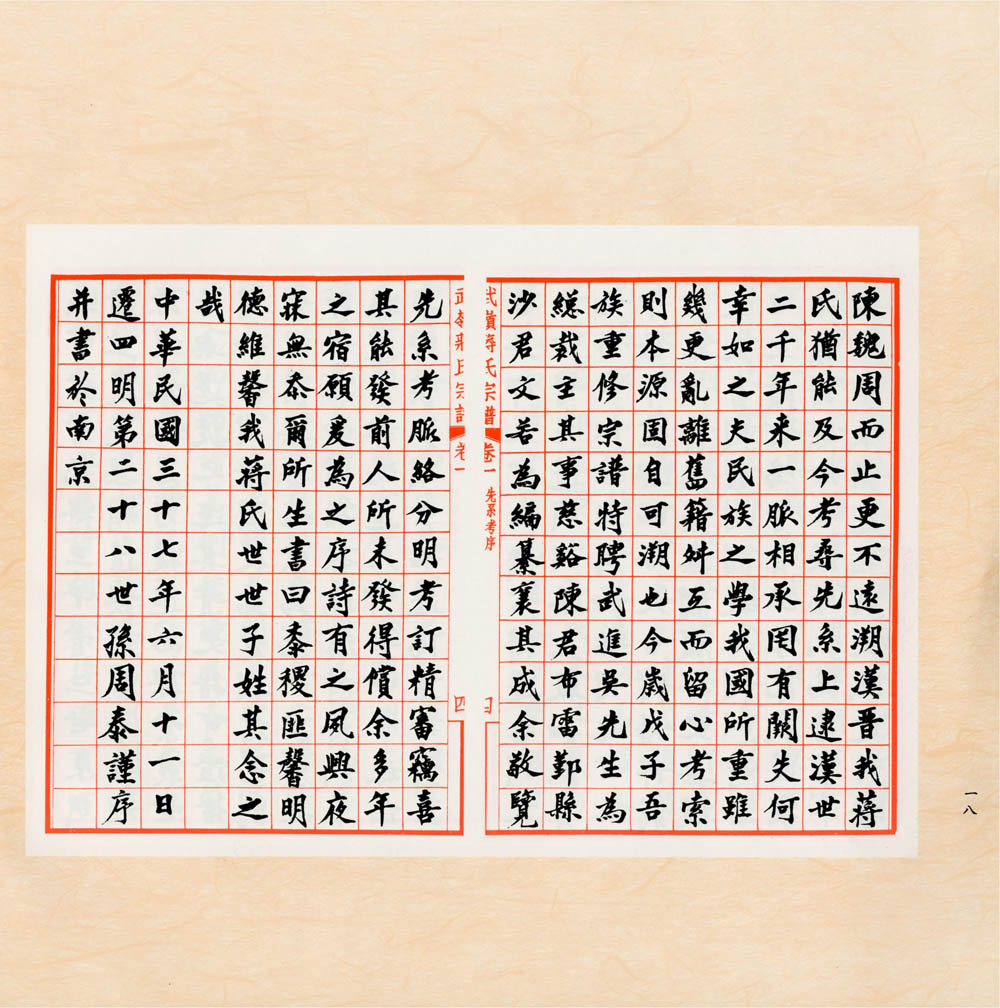 陳魏周而止更不遠溯漢晉我蔣
氏猶能及今考尋先系上逮漢世
二千年来一脈相承罔有闕失何
幸如之夫民族之學我國所重雖
幾更亂離舊籍舛互而留心考索
則本源固自可溯也今歲戊子吾
族重修宗譜特聘武進吳先生為
總裁主其事慈谿陳君布雷鄞縣
沙君文若為編纂襄其成余敬覽
武嶺蔣氏宗譜 卷一 先系考序 四
武嶺蔣氏宗譜 卷一 四
先系考脈絡分明考訂精審竊喜
其能發前人所未發得償余多年
之宿願爰為之序詩有之夙興夜
寐無忝爾所生書曰黍稷匪馨明
德維馨我蔣氏世世子姓其念之
哉
中華民國三十七年六月十一日
遷四明第二十八世孫周泰謹序
并書於南京
一八